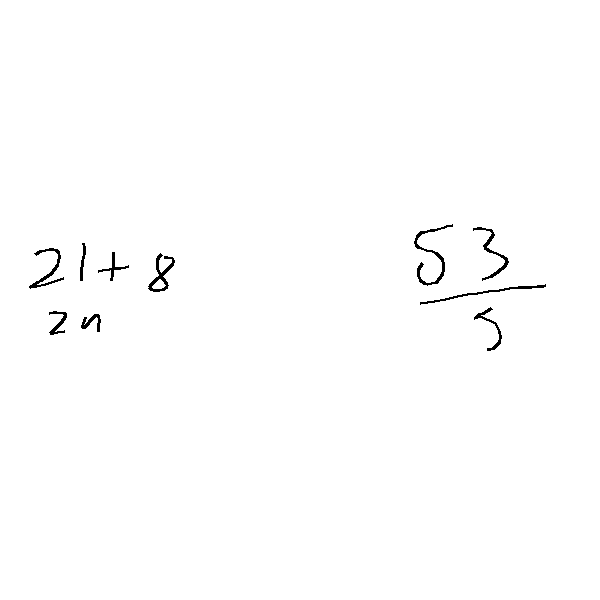 21+ 8
2n
53
5